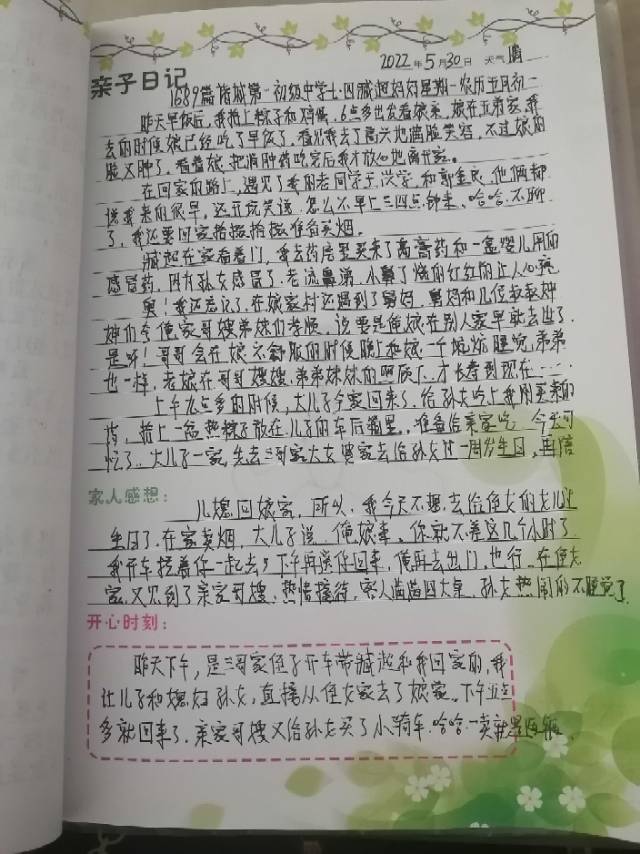 亲子日记
2022年5月30日 天气晴
1689篇诸城第一初级中学七.四臧 妈妈星期一农历五月初一
昨天早饭后,我捎上粽子和鸡蛋,6点多出发看娘亲,娘在五哥家,我
去的时候娘已经吃了早饭了,看见我去了高兴地满脸笑容,不过娘的
脸又肿了,看着娘把消肿药吃完后我才放心地离开家。
在回家的路上,遇见了我的老同学于洪学,和郭金民,他俩都
说我来的很早,还开玩笑说,怎么不早上三四点钟来、哈哈、不聊
了,我还要回家拾掇拾掇准备卖烟。
臧 在家看着门,我去药店里买来了膏药和一盒婴儿用的
感冒药,因为孙女感冒了,老流鼻涕,小鼻子烧的红红的让人心疼
奥!我还忘记了,在娘家村还遇到了舅妈,舅妈和几位叔叔婶
婶们夸俺家哥嫂弟妹们孝顺,说要是俺娘在别人家早就去世了
是呀!哥哥会在娘不舒服的时候晚上和娘一个炕炕睡觉,弟弟
也一样,老娘在哥哥嫂嫂.弟弟妹妹的照顾下.才长寿到现在……
上午九点多的时候,大儿子今家回来了,给孙女吃上我刚买来的
药,捎上一盆热粽子放在儿子的车后备里,准备给亲家吃 今天可
忙了..大儿子一家,先去三哥家大女婿家去给孙女过一周岁生日,再陪
家人感想:
儿媳回娘家,所以,我今天不想去给侄女的女儿过
生日了,在家卖烟,大儿子说,俺娘来,你就不差这几个小时了
我开车拉着你一起去,下午再送你回来,俺再去出门,也行,在侄女
家,又见到了亲家哥嫂,热情接待,客人满满四大桌,孙女热闹的不睡觉了
开心时刻:
昨天下午,是三哥家侄子开车带臧 和我回家的,我
让儿子和媳妇孙女,直接从侄女家去了娘家,下午五点
多就回来了,亲家哥嫂又给孙女买了小骑车,哈哈一卖就是两辆,